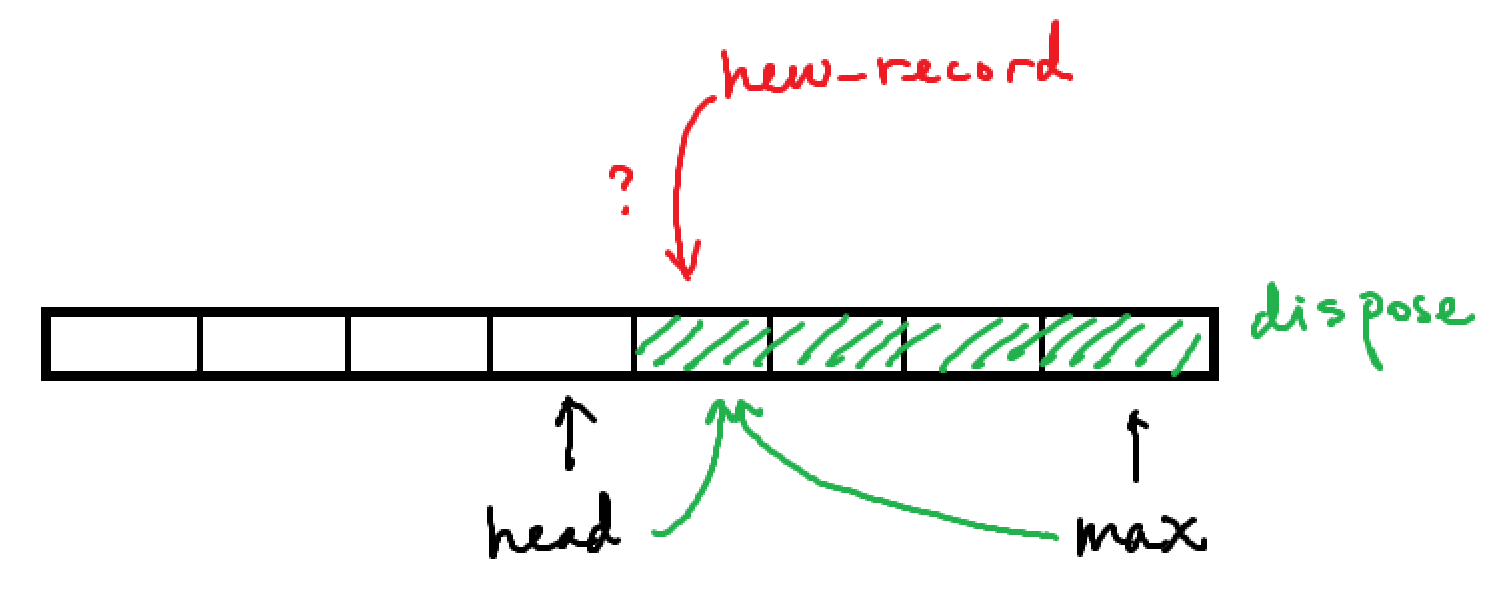 new-record
?
dispose
head
max